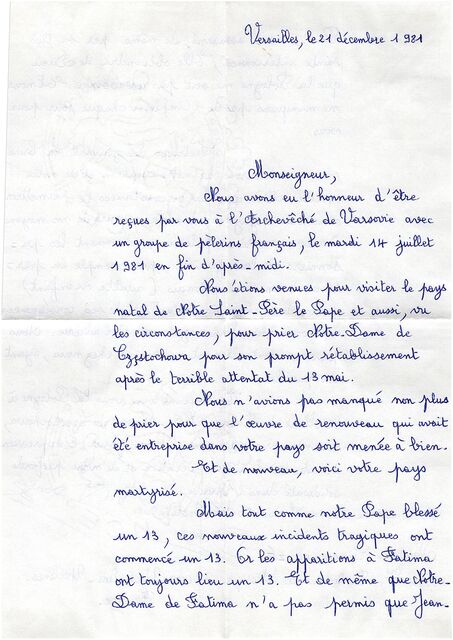 Versailles, le 21 décembre 1981
Monseigneur,
Nous avons eu l'honneur d'être
reçues par vous à l'Archevêché de Varsovie avec
un groupe de pèlerins français, le mardi 14 juillet
1981 en fin d'après-midi.
Nous étions venues pour visiter le pays
natal de Notre Saint-Père le Pape et aussi, vu
les circonstances, pour prier Notre-Dame de
Częstochowa pour son prompt rétablissement
après le terrible attentat du 13 mai.
Nous n'avions pas manqué non plus
de prier pour que l'œuvre de renouveau qui avait
été entreprise dans votre pays soit menée à bien.
Et de nouveau, voici votre pays
martyrisé.
Mais tout comme notre Pape blessé
un 13, ces nouveaux incidents tragiques ont
commencé un 13. Or les apparitions à Fatima
ont toujours lieu un 13. Et de même que Notre-
Dame de Fatima n'a pas permis que Jean-